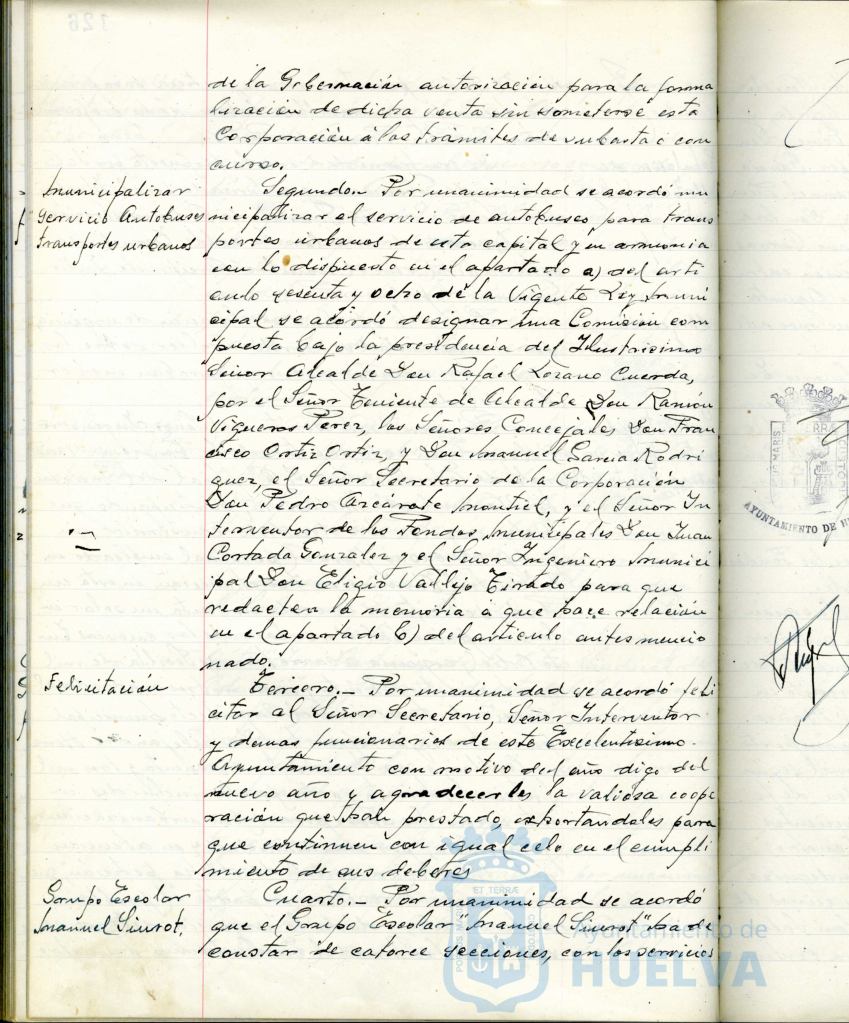 de la Gobernación autorización para la forma
lización de dicha venta sin someterse esta
Corporación á los trámites de subasta ó con
curso.
Municipalizar
Servicio Autobuses
transportes urbanos
Segundo.- Por unanimidad se acordó mu
nicipalizar el servicio de autobuses para trans
portes urbanos de esta capital y en armonia
con lo dispuesto en el apartado a) del arti
culo sesenta y ocho de la Vigente Ley Muni
cipal se acordó designar una Comisión com
puesta bajo la presidencia del Ilustrisimo
Señor Alcalde Don Rafael Lozano Cuerda,
por el Señor Teniente de Alcalde Don Ramón
Vigueras Perez, los Señores Concejales Don Fran
cisco Ortiz Ortiz, y Don Manuel Garcia Rodri
guez, el Señor Secretario de la Corporación
Don Pedro Azcárate Montiel, y el Señor In
terventor de los Fondos Municipales Don Juan
Cortada Gonzalez y el Señor Ingeniero Munici
pal Don Eligio Vallejo Tirado para que
redacten la memoria á que hace relación
en el apartado b) del articulo antes mencio
nado.
Felicitación
Tercero.- Por unanimidad se acordó feli
citar al Señor Secretario, Señor Interventor
y demas funcionarios de este Excelentisimo
Ayuntamiento con motivo del año digo del
nuevo año y agradecerles la valiosa coope
ración que han prestado exhortandoles para
que continuen con igual celo en el cumpli
miento de sus deberes
Grupo Escolar
Manuel Siurot.
Cuarto.- Por unanimidad se acordó
que el Grupo Escolar "Manuel Siurot" ha de
constar de catorce secciones, con los servicios
AYUNTAMIENTO DE H
Ayuntamiento de
HUELVA